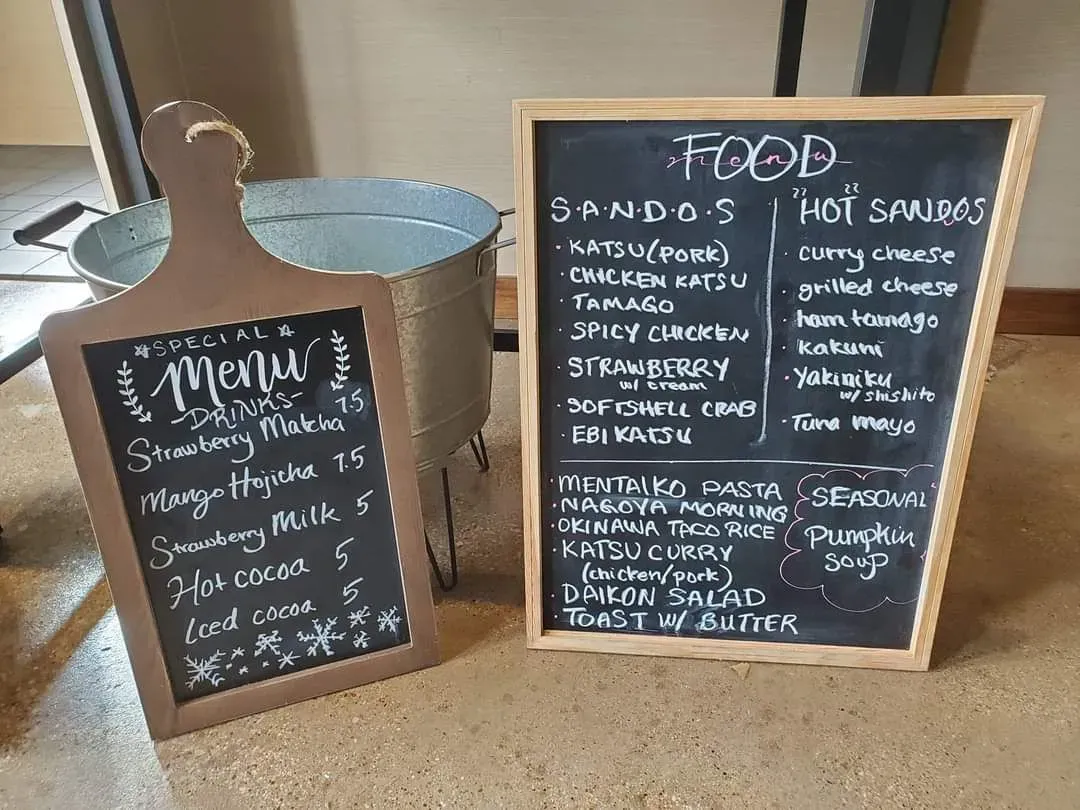 SPECIAL
Menu
-DRINKS-
Strawberry Matcha 7.5
Mango Hojicha 7.5
Strawberry Milk 5
Hot cocoa 5
Iced cocoa 5
FOOD
menu
S·A·N·D·O·S
· KATSU (PORK)
· CHICKEN KATSU
· TAMAGO
· SPICY CHICKEN
· STRAWBERRY
w/ cream
· SOFTSHELL CRAB
· EBI KATSU
"HOT SANDOS
· curry cheese
· grilled cheese
· ham tamago
· kakuni
· Yakiniku
w/ shishito
· Tuna mayo
· MENTAIKO PASTA
· NAGOYA MORNING
· OKINAWA TACO RICE
· KATSU CURRY
(chicken/pork)
· DAIKON SALAD
· TOAST W/ BUTTER
SEASONAL
Pumpkin
soup